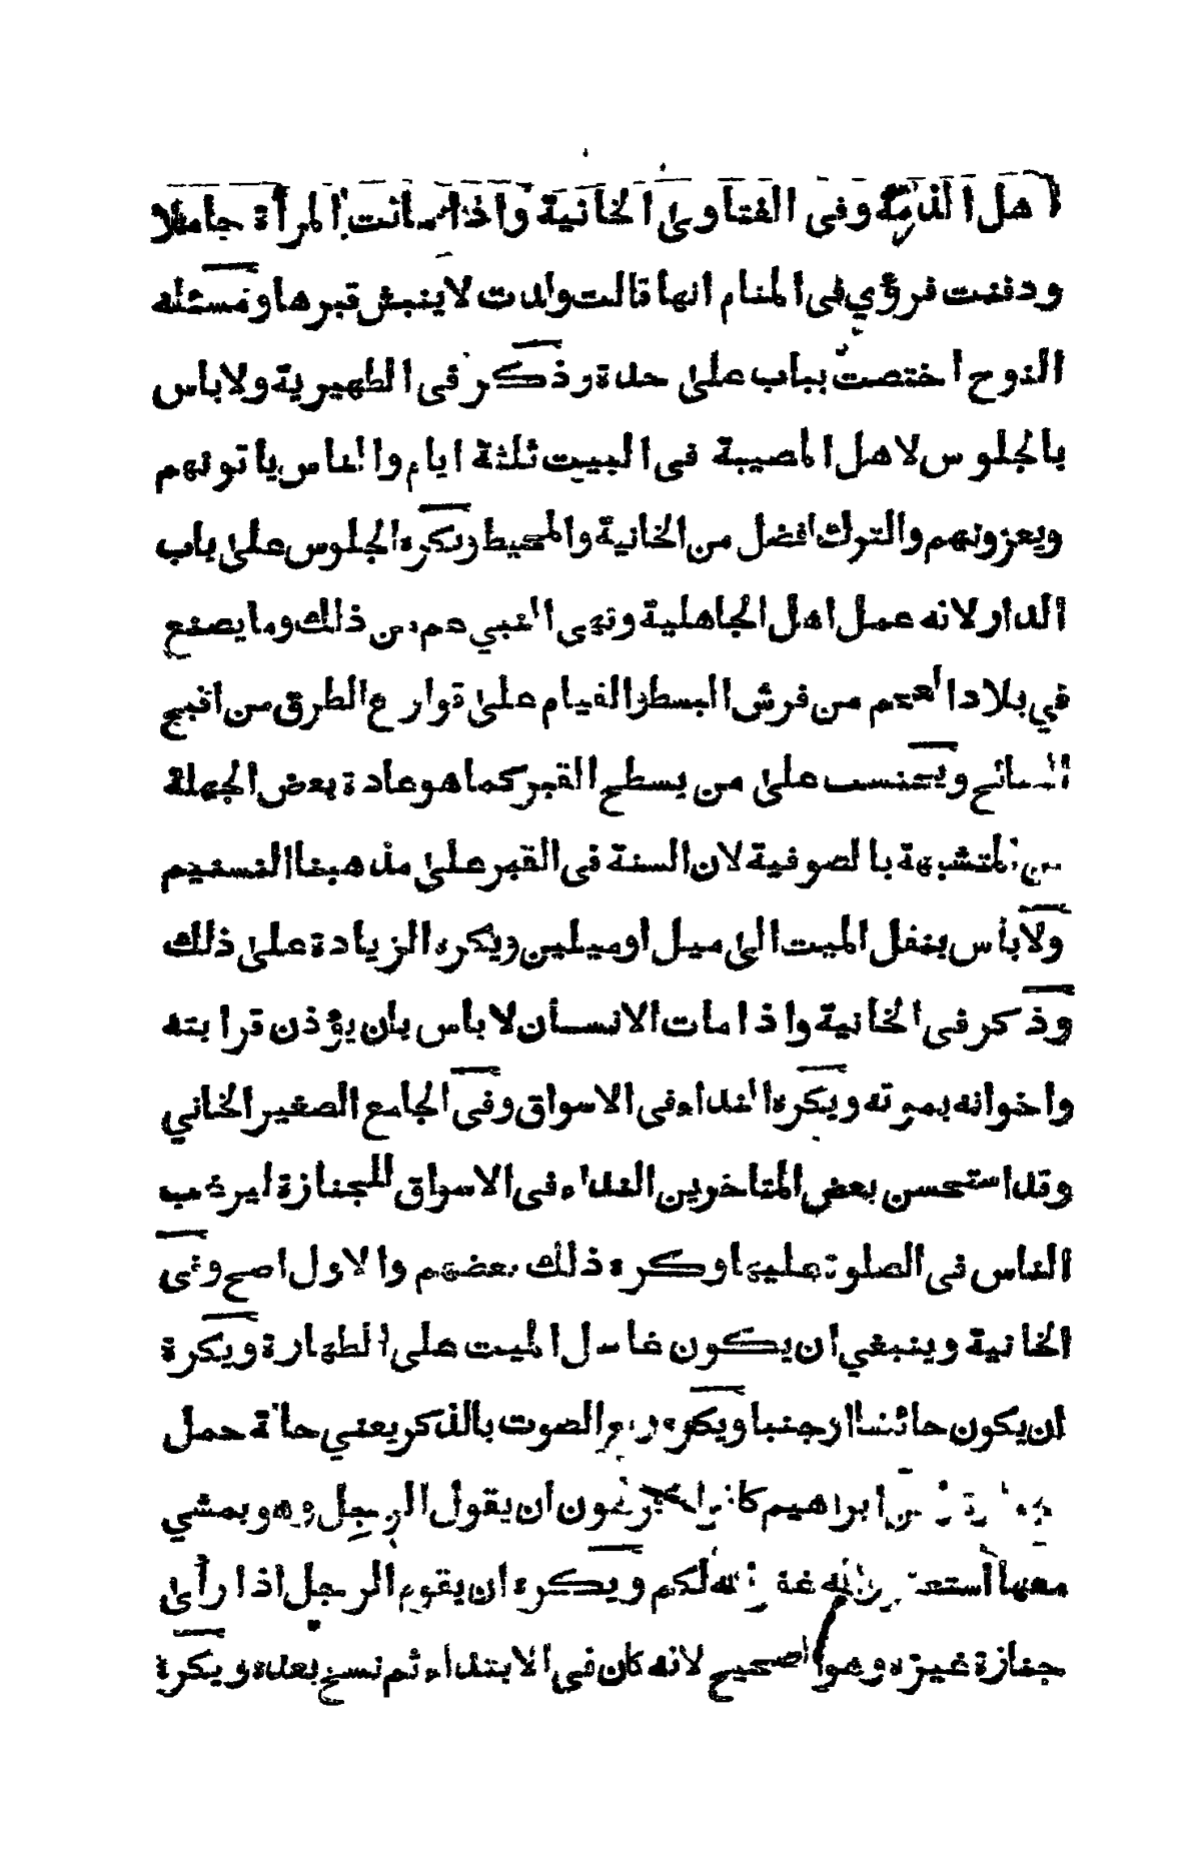 اهل الذمة وفى الفتاوى الخانية واذا ماتت المرأة حاملا
ودفنت فرؤي فى المنام انها قالت ولدت لا ينبش قبرها ومسئله
النوح اختصت بباب على حدة وذكر فى الظهيرية ولا باس
بالجلوس لاهل المصيبة فى البيت ثلثة ايام والناس ياتونهم
ويعزونهم والترك افضل من الخانية والمحيط ويكره الجلوس على باب
الدار لانه عمل اهل الجاهلية ونهى النبي عم من ذلك وما يصنع
في بلاد العجم من فرش البسط والقيام على قوارع الطرق من اقبح
القبائح ويحتسب على من يسطح القبر كما هو عادة بعض الجهلة
من المتشبهة بالصوفية لان السنة فى القبر على مذهبنا التسنيم
ولا بأس بنقل الميت الى ميل او ميلين ويكره الزيادة على ذلك
وذكر فى الخانية واذا مات الانسان لا بأس بان يؤذن قرابته
واخوانه بموته ويكره النداء فى الاسواق وفى الجامع الصغير الخاني
وقد استحسن بعض المتاخرين النداء فى الاسواق للجنازة ليرغب
الناس فى الصلوة عليها وكره ذلك بعضهم والاول اصح وفى
الخانية وينبغي ان يكون غاسل الميت على الطهارة ويكرة
ان يكون حائضا او جنبا ويكره رفع الصوت بالذكر يعني حالة حمل
ابراهيم كانوا يكرهون ان يقول الرجل وهو يمشي
معها استغفروا له غفر الله لكم ويكره ان يقوم الرجل اذا رأى
جنازة غيره وهو الصحيح لانه كان فى الابتداء ثم نسخ بعده ويكرة